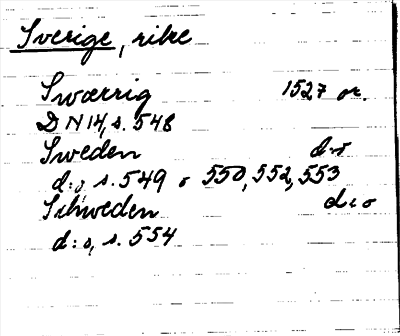 Sverige, rike
Swærrig 1527 or.
DN 14, s. 548
Sweden d:o
d:o, s. 549 o 550, 552, 553
Schweden d:o
d:o, s. 554